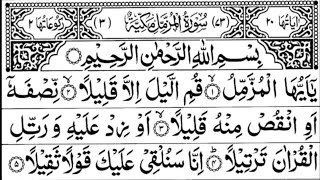 اٰیَاتُهَا ٢٠ (٧٣) سُوْرَةُ الْمُزَّمِّلِ مَكِّيَّةٌ (٣) رُكُوْعَاتُهَا ٢
بِسْمِ اللهِ الرَّحْمٰنِ الرَّحِيْمِ
يٰۤاَيُّهَا الْمُزَّمِّلُ ۙ﴿۱﴾ قُمِ الَّيْلَ اِلَّا قَلِيْلًا ۙ﴿۲﴾ نِّصْفَهٗۤ
اَوِ انْقُصْ مِنْهُ قَلِيْلًا ۙ﴿۳﴾ اَوْ زِدْ عَلَيْهِ وَ رَتِّلِ
الْقُرْاٰنَ تَرْتِيْلًا ؕ﴿۴﴾ اِنَّا سَنُلْقِيْ عَلَيْكَ قَوْلًا ثَقِيْلًا ﴿۵﴾